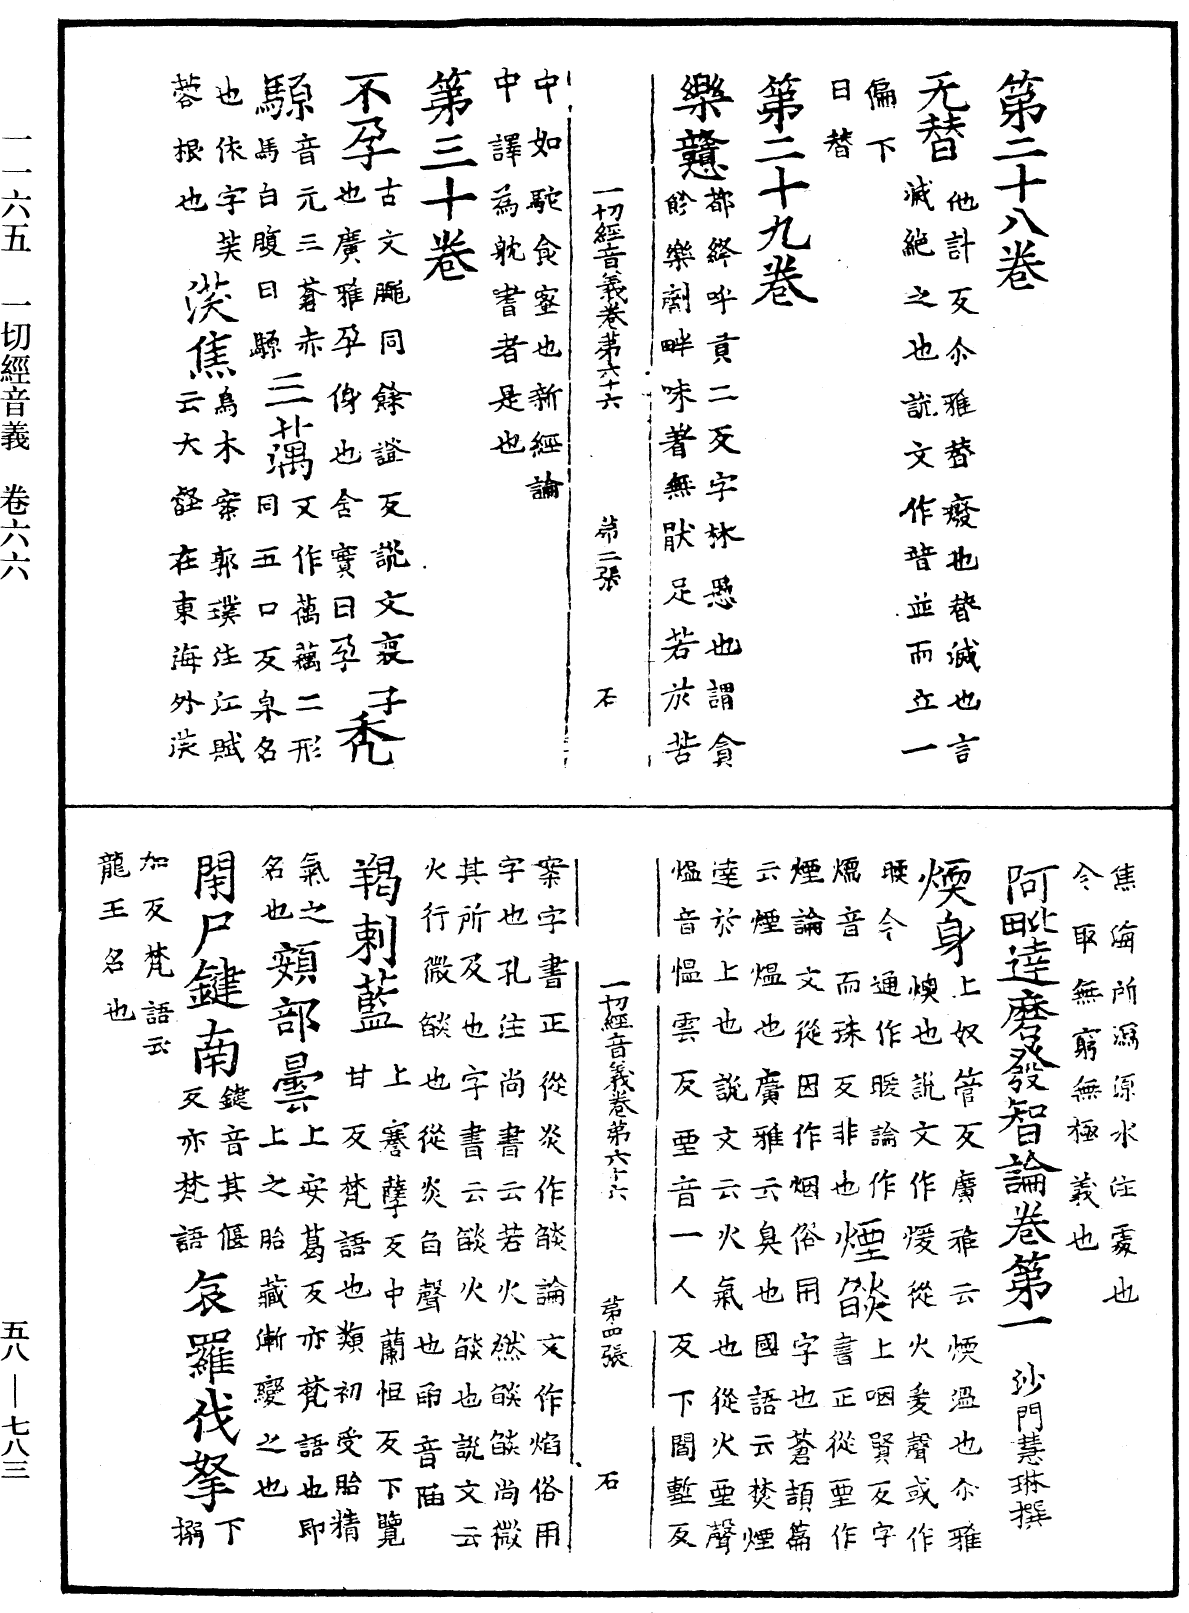 第二十八卷
无替 他計反尒雅替廢也替滅也言
滅絶之也說文作暜並而立一
偏下
日替
第二十九卷
樂戇 都絳呼貢二反字林愚也謂貪
飻樂劇畔味著無猒足若於苦
一切經音義卷第六十六 第三張 石
中如駝食蜜也新經論
中譯為躭嗜者是也
第三十卷
不孕 古文䋲同餘證反說文褢子
也廣雅孕㑗也含實曰孕 禿
騵 音元三蒼赤
馬白腹曰騵 三蕅 又作蕅藕二形
同五口反泉名
也依字芙
蓉根也 渶焦 烏木案郭璞注江賦
云大壑在東海外渶
焦海所瀉源水注處也
令取無窮無極義也
阿毗達磨發智論卷第一 沙門慧琳撰
煗身 上奴管反廣雅云煗溫也尒雅
煗也說文作煖從火爰聲或作
㬉今通作暖論作
燸音而珠反非也 煙燄 上咽賢反字
書正從垔作
煙論文從因作烟俗用字也蒼頡篇
云煙熅也廣雅云臭也國語云焚煙
達於上也說文云火氣也從火垔聲
熅音慍雲反垔音一人反下閻壍反
一切經音義卷第六十六 第四張 石
案字書正從炎作燄論文作焰俗用
字也孔注尚書云若火㷼燄燄尚微
其所及也字書云燄火燄也說文云
火行微燄也從炎臽聲也臽音陷
羯剌藍 上蹇孽反中蘭怛反下覽
甘反梵語也類初受胎精
氣之
名也 頞部曇 上安葛反亦梵語也即
上之胎藏漸變之也
閉尸鍵南 鍵音其偃
反亦梵語 䆠羅伐拏 下
搦
加反梵語云
龍王名也
一一六五 一切經音義 卷六六
五八—七八三